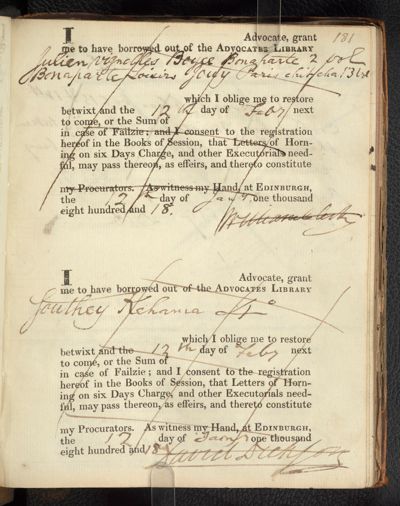 181
I Advocate, grant
me to have borrowed out of the ADVOCATES LIBRARY
Bonaparte 2 vol
Bonaparte Paris 3 vol
which I oblige me to restore
betwixt and the 12th day of Feby next
to come, or the Sum of
in case of Failzie; and I consent to the registration
hereof in the Books of Session, that Letters of Horn-
ing on six Days Charge, and other Executorials need-
ful, may pass thereon, as effeirs, and thereto constitute
my Procurators. As witness my Hand, at EDINBURGH,
the 12th day of one thousand
eight hundred and 18.
I Advocate, grant
me to have borrowed out of the ADVOCATES LIBRARY
Southey Kehama 4to
which I oblige me to restore
betwixt and the 12th day of Feby next
to come, or the Sum of
in case of Failzie; and I consent to the registration
hereof in the Books of Session, that Letters of Horn-
ing on six Days Charge, and other Executorials need-
ful, may pass thereon, as effeirs, and thereto constitute
my Procurators. As witness my Hand, at EDINBURGH,
the 12 day of one thousand
eight hundred and 18
David Dickson